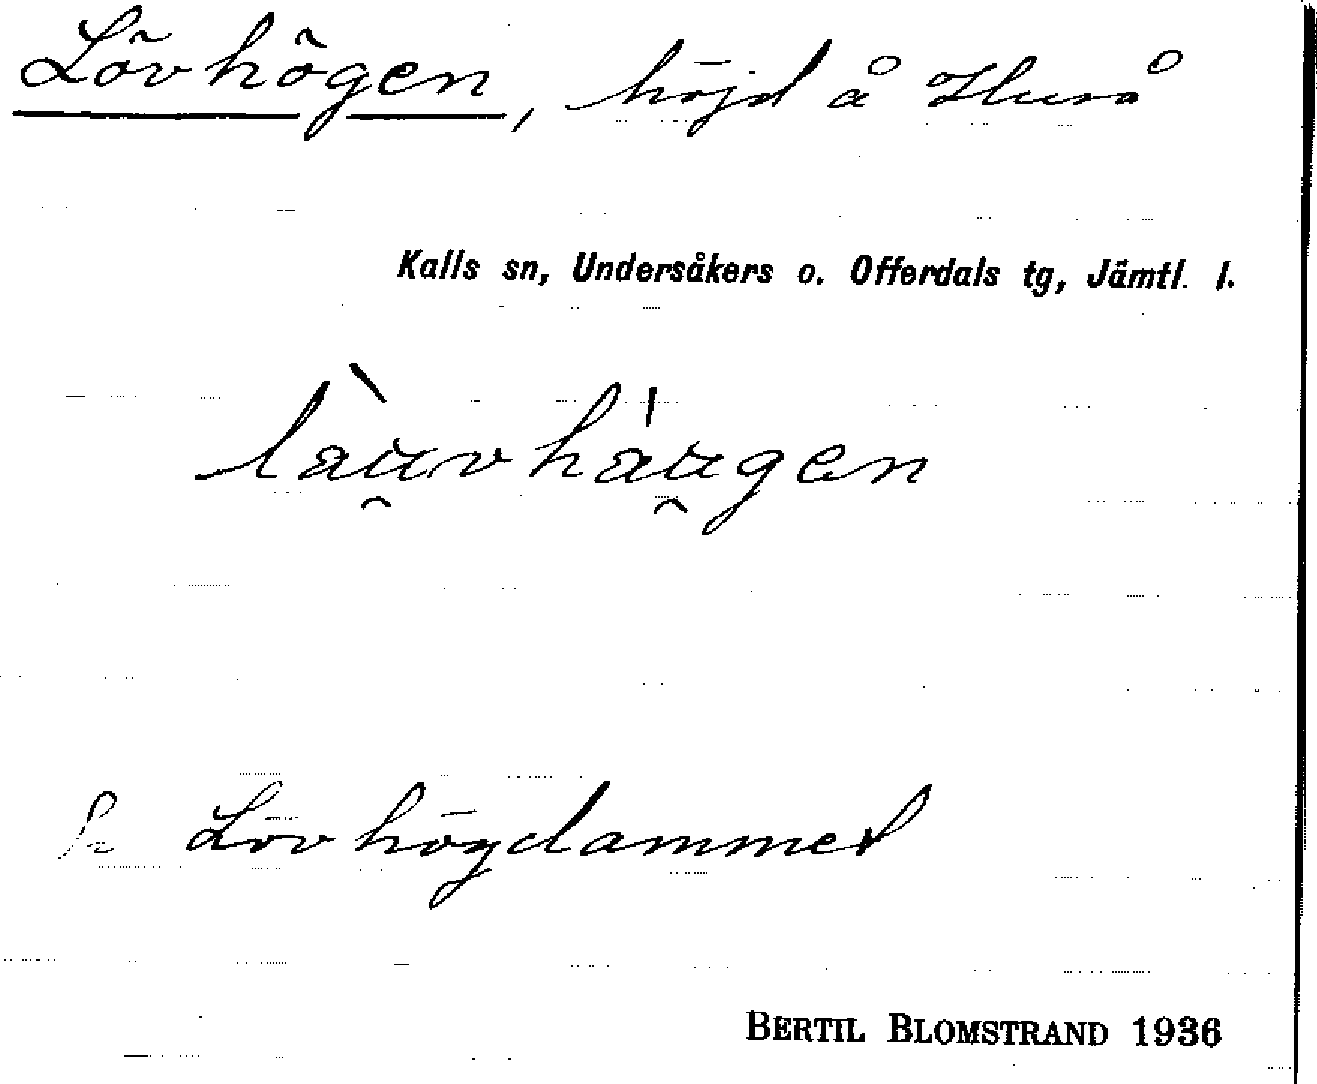 Lövhögen, höjd å Huså
Kalls sn, Undersåkers o. Offerdals tg, Jämtl. l.
làu̯vháu̯gen
Se Lövhögdammet
BERTIL BLOMSTRAND 1936